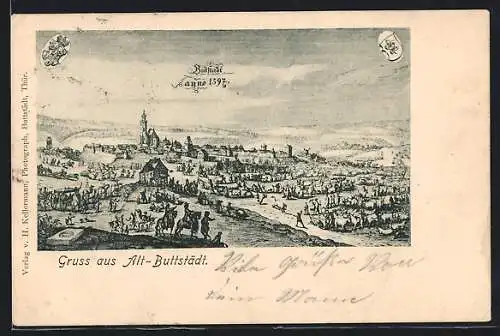 Buttstadt
anno 1597.
Verlag v. H. Kellermann, Photograph, Buttstädt, Thür.
Gruss aus Alt-Buttstädt.
Viele Grüße von
dein Mann